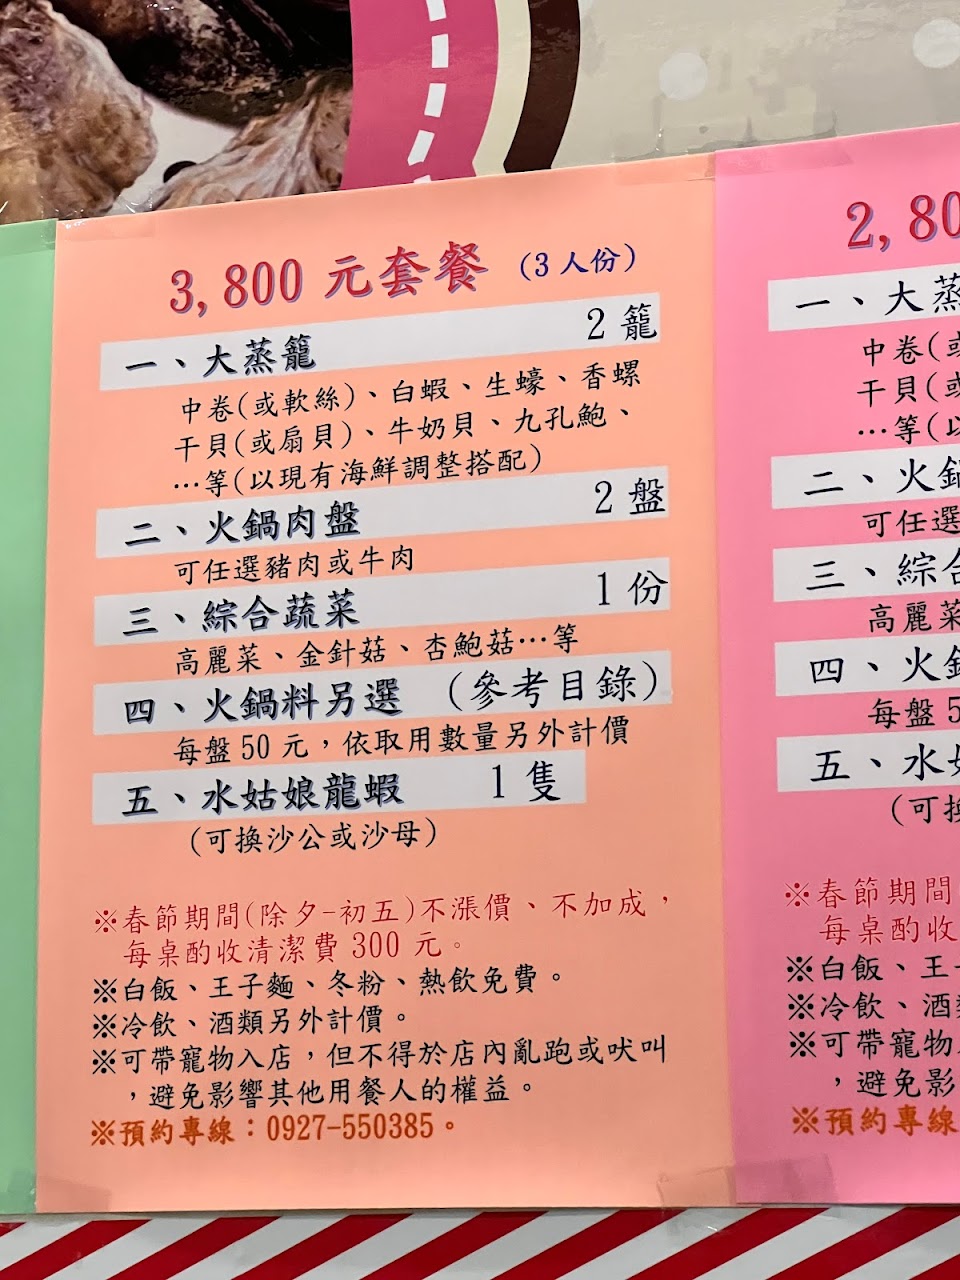 3,800 元套餐 (3人份)
一、大蒸籠 2 籠
中卷(或軟絲)、白蝦、生蠔、香螺
干貝(或扇貝)、牛奶貝、九孔鮑、
…等(以現有海鮮調整搭配)
二、火鍋肉盤 2 盤
可任選豬肉或牛肉
三、綜合蔬菜 1 份
高麗菜、金針菇、杏鮑菇…等
四、火鍋料另選 (參考目錄)
每盤 50 元，依取用數量另外計價
五、水姑娘龍蝦 1 隻
(可換沙公或沙母)
※春節期間(除夕-初五)不漲價、不加成，
每桌酌收清潔費 300 元。
※白飯、王子麵、冬粉、熱飲免費。
※冷飲、酒類另外計價。
※可帶寵物入店，但不得於店內亂跑或吠叫
，避免影響其他用餐人的權益。
※預約專線：0927-550385。
2,80
一、大蒸
中卷(或
干貝(或
…等(以
二、火鍋
可任選
三、綜合
高麗菜
四、火鍋
每盤 5
五、水姑
(可換
※春節期間
每桌酌收
※白飯、王子
※冷飲、酒類
※可帶寵物
，避免影
※預約專線